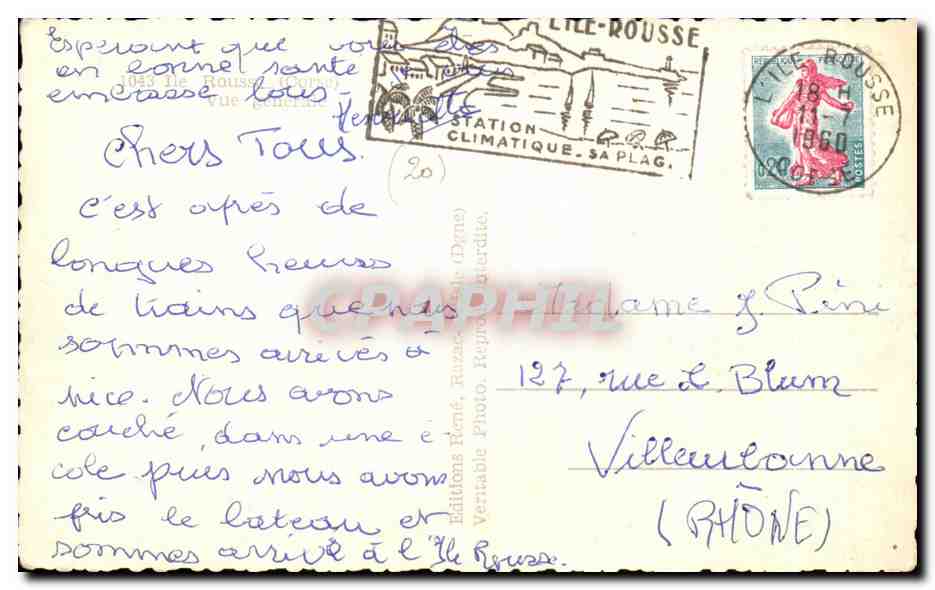 Esperant que vous etes
en bonne santé je vous
embrasse tous
1043 Ile Rousse (Corse)
Vue générale
Chers Tous.
c'est après de
longues heures
de trains que nous
sommes arrivés à
Nice. Nous avons
couché, dans une é
cole puis nous avons
pris le bateau et
sommes arrivé à l'Ile Rousse.
L'ILE-ROUSSE
STATION
CLIMATIQUE. SA PLAG.
(20)
L'ILE ROUSSE
18 H
11-7
1960
CORSE
0,20
POSTES
Editions René, Razac (Dgne)
Veritable Photo. Reprod. interdite.
CPAPHIL
Madame J. Pini
127, rue L. Blum
Villeurbanne
(RHÔNE)